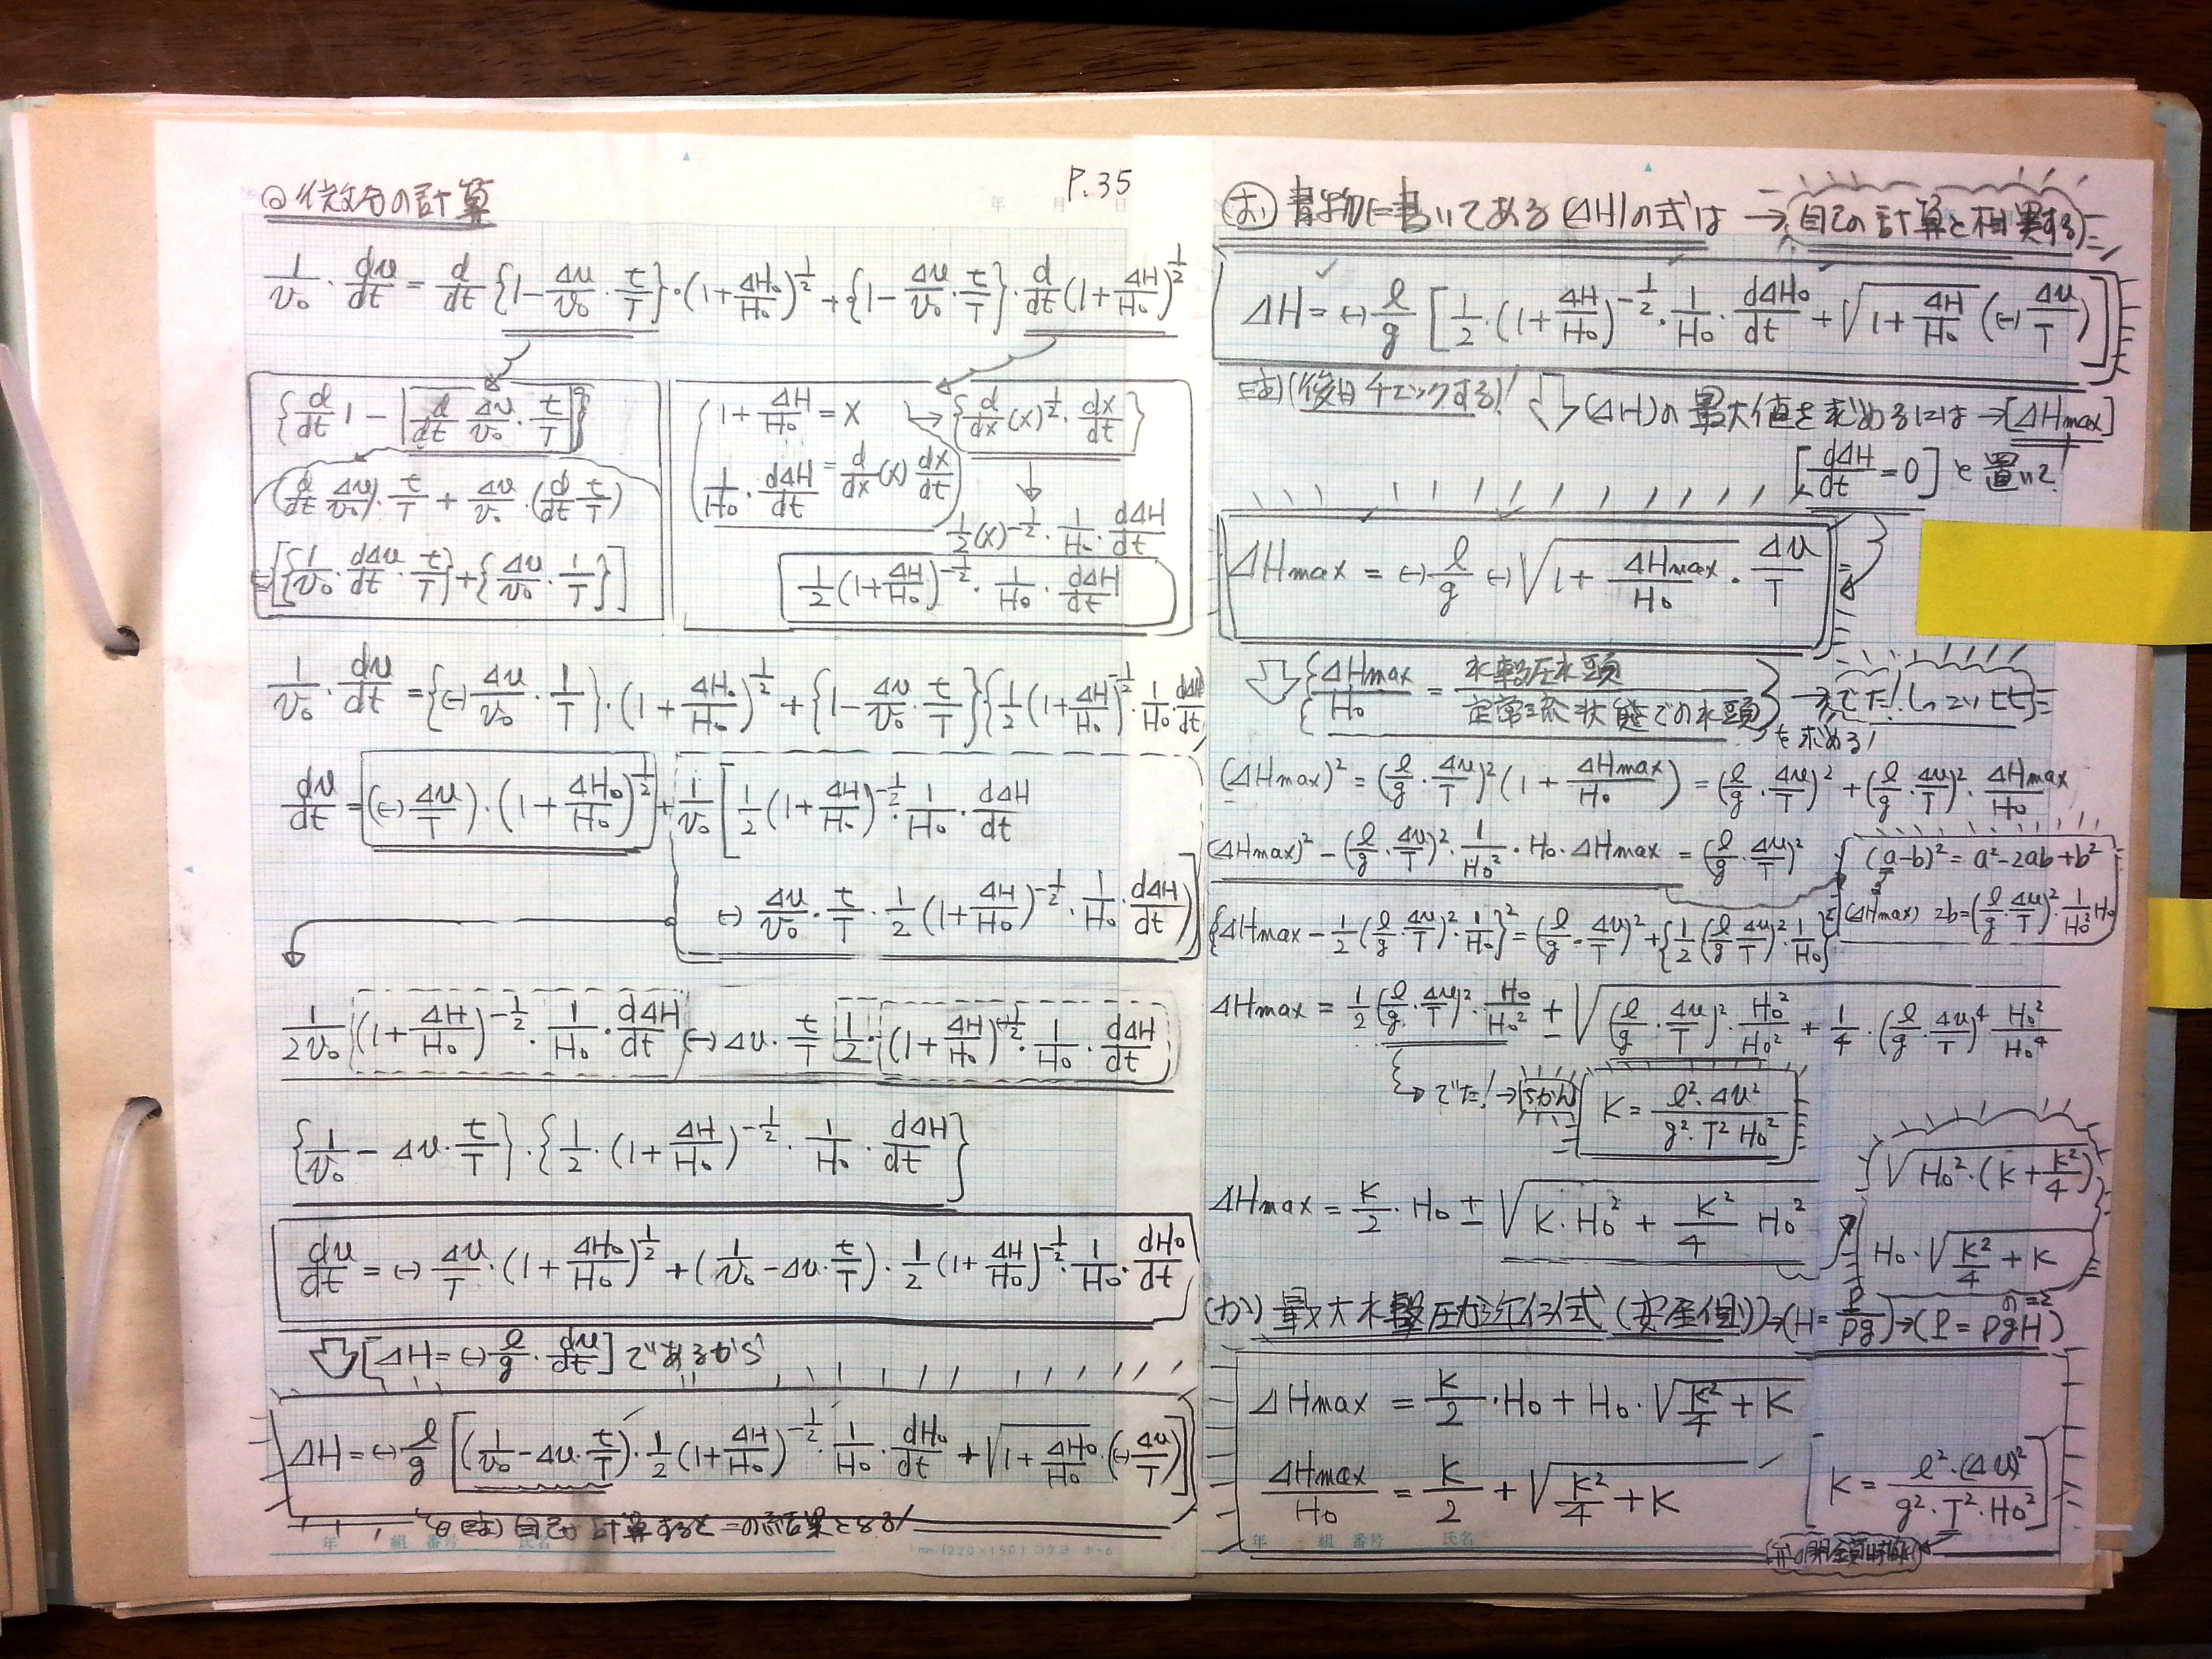 P.35
◎微分の計算
1/v₀・dv/dt = d/dt{1-Δv/v₀・t/T}・(1+ΔH₀/H₀)^1/2 + {1-Δv/v₀・t/T}・d/dt(1+ΔH/H₀)^1/2
{d/dt 1 - [d/dt Δv/v₀・t/T]}
(d/dt Δv/v₀)・t/T + Δv/v₀・(d/dt t/T)
=[{1/v₀・dΔv/dt・t/T}+{Δv/v₀・1/T}]
1+ΔH/H₀ = X → {d/dx(x)^1/2・dx/dt}
1/H₀・dΔH/dt = d/dx(x) dx/dt
1/2(x)^-1/2・1/H₀・dΔH/dt
1/2(1+ΔH/H₀)^-1/2・1/H₀・dΔH/dt
1/v₀・dv/dt = {(-)Δv/v₀・1/T}・(1+ΔH₀/H₀)^1/2 + {1-Δv/v₀・t/T}{1/2(1+ΔH/H₀)^-1/2・1/H₀・dΔH/dt
dv/dt = (-)Δv/T)・(1+ΔH₀/H₀)^1/2 + 1/v₀[1/2(1+ΔH/H₀)^-1/2・1/H₀・dΔH/dt
(-) Δv/v₀・t/T・1/2(1+ΔH/H₀)^-1/2・1/H₀・dΔH/dt]
1/2v₀(1+ΔH/H₀)^-1/2・1/H₀・dΔH/dt (-) Δv・t/T 1/2・(1+ΔH/H₀)^-1/2・1/H₀・dΔH/dt
{1/v₀ - Δv・t/T}・{1/2・(1+ΔH/H₀)^-1/2・1/H₀・dΔH/dt}
dv/dt = (-) Δv/T・(1+ΔH₀/H₀)^1/2 + (1/v₀-Δv・t/T)・1/2(1+ΔH/H₀)^-1/2・1/H₀・dH₀/dt
[ΔH=(-)ℓ/g・dv/dt]であるから
ΔH=(-)ℓ/g[(1/v₀-Δv・t/T)・1/2(1+ΔH/H₀)^-1/2・1/H₀・dH₀/dt + √(1+ΔH₀/H₀)・(-)Δv/T)]
(注)自己の計算するとこの結果となる!
年 組 番号 氏名
(お)書物に書いてある(ΔH)の式は → 自己の計算と相異する
ΔH = (-)ℓ/g[1/2・(1+ΔH/H₀)^-1/2・1/H₀・dΔH₀/dt + √(1+ΔH/H₀)((-)Δv/T)]
注)(後日チェックする)!
(ΔH)の最大値を求めるには→[ΔHmax]
[dΔH/dt=0]と置いて
ΔHmax = (-)ℓ/g (-)√(1+ΔHmax/H₀)・Δv/T
{ΔHmax/H₀ = 水撃圧水頭/定常流状態での水頭}
を求める!
(ΔHmax)² = (ℓ/g・Δv/T)²(1+ΔHmax/H₀) = (ℓ/g・Δv/T)² + (ℓ/g・Δv/T)²・ΔHmax/H₀
(ΔHmax)² - (ℓ/g・Δv/T)²・1/H₀²・H₀・ΔHmax = (ℓ/g・Δv/T)²
(a-b)² = a²-2ab+b²
(ΔHmax) 2b=(ℓ/g・Δv/T)²・1/H₀² H₀
{ΔHmax - 1/2(ℓ/g・Δv/T)²・1/H₀}² = (ℓ/g・Δv/T)² + {1/2(ℓ/g Δv/T)²・1/H₀}²
ΔHmax = 1/2(ℓ/g・Δv/T)²・H₀/H₀² ± √((ℓ/g・Δv/T)²・H₀²/H₀² + 1/4・(ℓ/g・Δv/T)⁴ H₀²/H₀⁴)
でた!→ K = ℓ²・Δv²/g²・T² H₀²
√(H₀²・(K+K²/4))
ΔHmax = K/2・H₀ ± √(K・H₀² + K²/4 H₀²)
H₀・√(K²/4+K)
(か)最大水撃圧力許仏式(安全側)→(H=P/ρg)→(P=ρgH)
ΔHmax = K/2・H₀ + H₀・√(K²/4+K)
ΔHmax/H₀ = K/2 + √(K²/4+K)
[K = ℓ²・(Δv)²/g²・T²・H₀²]
年 組 番号 氏名